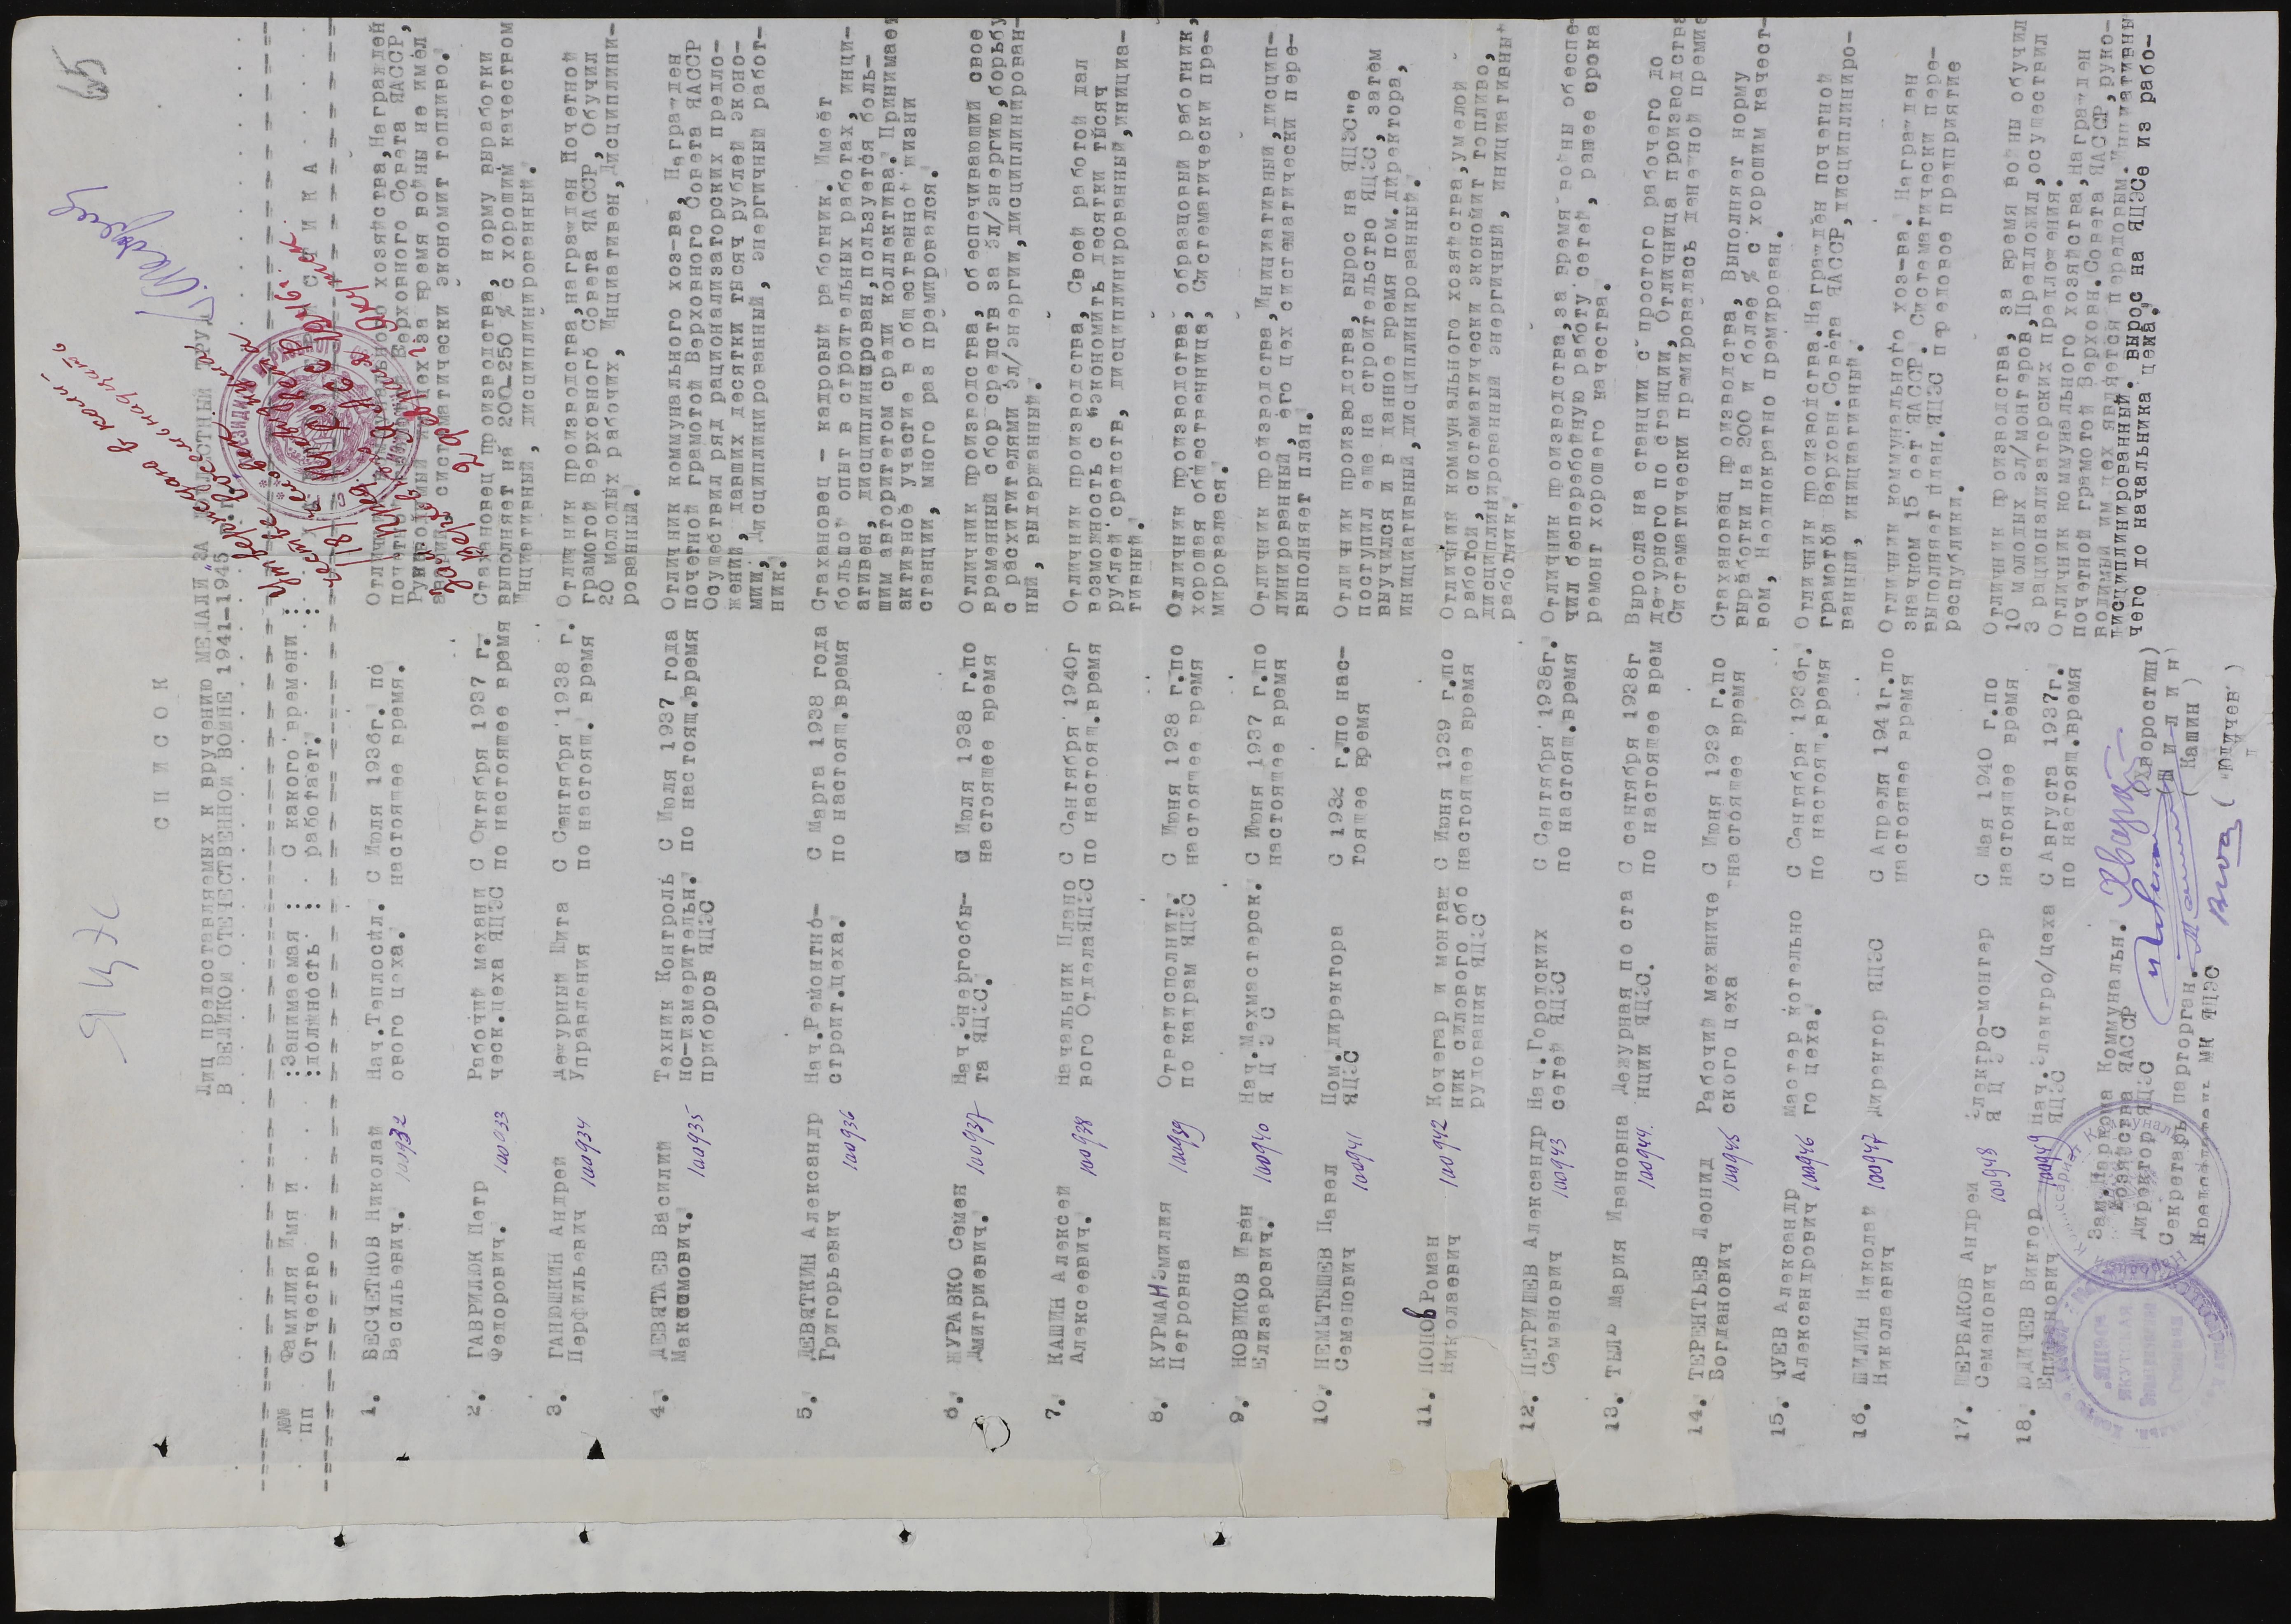 65
ЯЦЭС
С П И С О К
Лиц предоставляемых к вручению МЕДАЛИ "ЗА ДОБЛЕСТНЫЙ ТРУД
В ВЕЛИКОЙ ОТЕЧЕСТВЕННОЙ ВОЙНЕ 1941-1945 г.г.
№№ Фамилия Имя и :Занимаемая : С какого времени :
ПП Отчество :должность : работает. :
1. БЕСЧЕТНОВ Николай Нач.Теплосил. С Июля 1936г. по Отличник коммунального хозяйства,Награжден
Васильевич. 100932 ового цеха. настоящее время. почетной грамотой Верховного Совета ЯАССР,
Руководимый им цех за время войны не имел
аварий, систематически экономит топливо.
2. ГАВРИЛЮК Петр Рабочий механи С Октября 1937 г. Стахановец производства, норму выработки
Федорович. 100933 ческ.цеха ЯЦЭС по настоящее время выполняет на 200-250 % с хорошим качеством
Инциативный, дисциплинированный.
3. ГАНЮШКИН Андрей Дежурный Щита С Сентября 1938 г. Отличник производства,награжден Почетной
Перфильевич 100934 Управления по настоящ. время грамотой Верховного Совета ЯАССР, Обучил
20 молодых рабочих, Инциативен,Дисциплини-
рованный.
4. ДЕВЯТАЕВ Василий Техник Контроль С Июля 1937 года Отличник коммунального хоз-ва, Награжден
Максимович. 100935 но-измерительн. по настоящ.время почетной грамотой Верховного Совета ЯАССР
приборов ЯЦЭС Осуществил ряд рационализаторских предло-
жений, давших десятки тысяч рублей эконо-
мии, Дисциплинированный, энергичный работ-
ник.
5. ДЕВЯТКИН Александр Нач.Ремонтно- С Марта 1938 года Стахановец - кадровый работник. Имеет
Григорьевич 100936 строит.цеха. по настоящ.время большой опыт в строительных работах, инци-
ативен, дисциплинирован,пользуется боль-
шим авторитетом среди коллектива. Принимает
активное участие в общественной жизни
станции, много раз премировался.
6. ЖУРАВКО Семен Нач.Энергосбы- С Июля 1938 г.по Отличник производства, обеспечивающий свое
Дмитриевич. 100937 та ЯЦЭС. настоящее время временный сбор средств за эл/энергию,борьбу
с расхитителями эл/энергии,дисциплинирован-
ный, выдержанный.
7. КАШИН Алексей Начальник Плано С Сентября 1940г Отличник производства, Своей работой дал
Алексеевич. 100938 вого ОтделаЯЦЭС по настоящ.время возможность с экономить десятки тысяч
рублей средств, дисциплинированный,инициа-
тивный.
8. КУРМАН Эмилия Ответисполнит. С Июня 1938 г.по Отличник производства, образцовый работник,
Петровна 100939 по кадрам ЯЦЭС настоящее время хорошая общественница, Систематически пре-
мировалася.
9. НОВИКОВ Иван Нач.Мехмастерск. С Июня 1937 г.по Отличник производства,Инициативный,дисцип-
Елизарович. 100940 Я Ц Э С настоящее время линированный, его цех систематически пере-
выполняет план.
10. НЕМЫТЫШЕВ Павел Пом.директора С 1932 г.по нас- Отличник производства, вырос на ЯЦЭС"е
Семенович 100941 ЯЦЭС тоящее время поступил еще на строительство ЯЦЭС, затем
выучился и в данное время пом.директора,
инициативный,дисциплинированный.
11. ПОПОВ Роман Кочегар и монтаж С Июня 1939 г.по Отличник коммунального хозяйства,умелой
Николаевич 100942 ник силового обо настоящее время работой, систематически экономит топливо,
рудования ЯЦЭС дисциплинированный энергичный, инициативны
работник.
12. ПЕТРИЩЕВ Александр Нач.Городских С Сентября 1938г. Отличник производства,за время войны обеспе
Семенович 100943 сетей ЯЦЭС по настоящ.время чил бесперебойную работу сетей, ранее срока
ремонт хорошего качества.
13. ТЫЛЬ Мария Ивановна Дежурная по ста С сентября 1938г Выросла на станции с простого рабочего до
100944 нции ЯЦЭС. по настоящее врем дежурного по станции, Отличница производства
Систематически премировалась денежной премие
14. ТЕРЕНТЬЕВ Леонид Рабочий механиче С Июня 1939 г.по Стахановец производства, Выполняет норму
Богданович 100945 ского цеха настоящее время выработки на 200 и более % с хорошим качест-
вом, Неоднократно премирован.
15. ЧУЕВ Александр мастер котельно С Сентября 1936г. Отличник производства.Награжден почетной
Александрович 100946 го цеха. по настоящ.время грамотой Верховн.Совета ЯАССР,дисциплиниро-
ванный, инициативный.
16. ШИЛИН Николай Директор ЯЦЭС С Апреля 1941г.по Отличник коммунального хоз-ва. Награжден
Николаевич 100947 настоящее время значком 15 лет ЯАССР. Систематически пере-
выполняет план.ЯЦЭС передовое предприятие
республики.
17. ЩЕРБАКОВ Андрей Электро-монтер С Мая 1940 г.по Отличник производства, за время войны обучил
Семенович 100948 Я Ц Э С настоящее время 10 молодых эл/монтеров,Предложил,осуществил
3 рационализаторских предложения.
18. ЮДИЧЕВ Виктор Нач.Электро/цеха С Августа 1937г. Отличник коммунального хозяйства,Награжден
100949 ЯЦЭС по настоящ.время почетной грамотой Верховн.Совета ЯАССР,руко-
водимый им цех является передовым.Инциативны
дисциплинированный. вырос на ЯЦЭСе из рабо-
чего до начальника цеха.
Зам.Наркома Коммунальн. (Хворостин)
Хозяйства ЯАССР
Директор ЯЦЭС (Ш и л и н
Секретарь парторган. ( Кашин )
Председатель МК ЯЦЭС ( Юдичев )